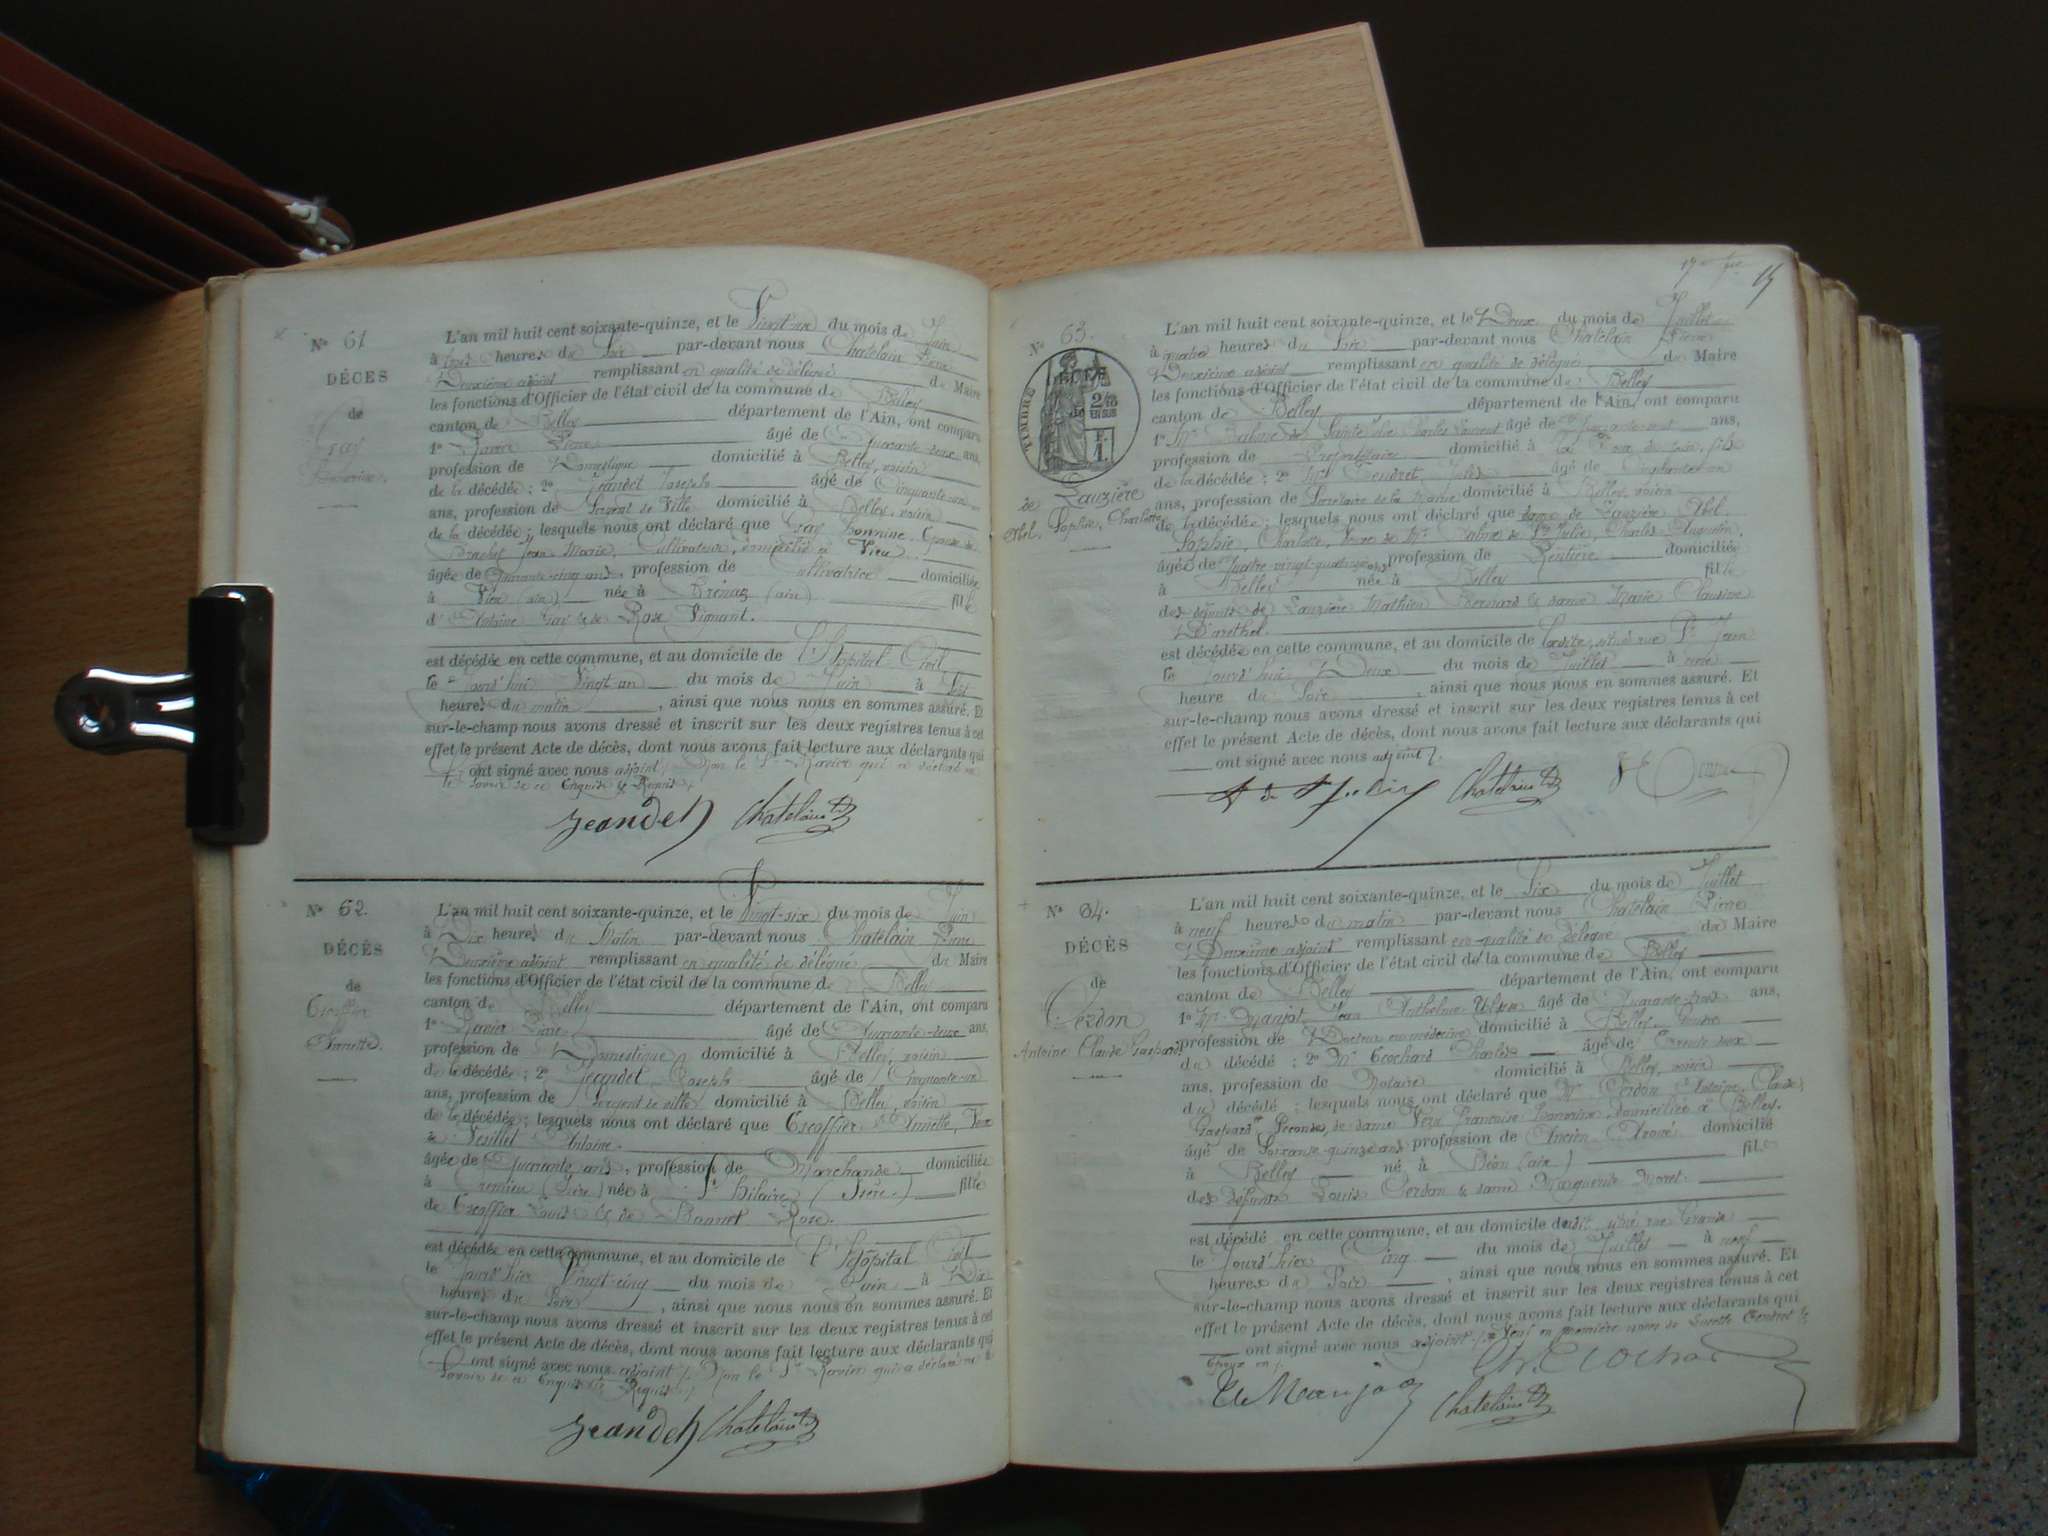 Nº 61
DÉCES
de
Gay
L'an mil huit cent soixante-quinze, et le Vingt-un du mois de Juin
à trois heures du Soir par-devant nous Chatelain Pierre
Deuxième adjoint remplissant en qualité de délégué du Maire
les fonctions d'Officier de l'état civil de la commune de Belley
canton de Belley département de l'Ain, ont comparu
1º Ravier Pierre âgé de Quarante-deux ans,
profession de Domestique domicilié à Belley, voisin
de la décédée ; 2º Jeandet Joseph âgé de Cinquante-un
ans, profession de Sergent de Ville domicilié à Belley, voisin
de la décédée ; lesquels nous ont déclaré que Gay Epouse de
Brachet Jean Marie, Cultivateur, domicilié à Vieu
âgée de Quarante-cinq ans, profession de Cultivatrice domiciliée
à Vieu (ain) née à Brénaz (ain) fille
d'Antoine Gay & de Rose Vignant.
est décédée en cette commune, et au domicile de l'Hôpital Civil
le jourd'hui Vingt-un du mois de Juin à Sept
heures du matin, ainsi que nous nous en sommes assuré. Et
sur-le-champ nous avons dressé et inscrit sur les deux registres tenus à cet
effet le présent Acte de décès, dont nous avons fait lecture aux déclarants qui
ont signé avec nous adjoint, Non le Sr Ravier qui a déclaré ne
le savoir de ce Enquis & Requis
Jeandet Chatelain
Nº 62.
DÉCÈS
de
Escoffier
Annette.
L'an mil huit cent soixante-quinze, et le Vingt-six du mois de Juin
à Dix heures du Matin par-devant nous Chatelain Pierre
Deuxième adjoint remplissant en qualité de délégué du Maire
les fonctions d'Officier de l'état civil de la commune de Belley
canton de Belley département de l'Ain, ont comparu
1º Ravier Pierre âgé de Quarante-deux ans,
profession de Domestique domicilié à Belley, voisin
de la décédée ; 2º Jeandet Joseph âgé de Cinquante-un
ans, profession de Sergent de ville domicilié à Belley, voisin
de la décédée ; lesquels nous ont déclaré que Escoffier Annette, Veuve
de Antoine.
âgée de Quarante ans, profession de Marchande domiciliée
à Crémieu (Isère) née à St hilaire (Isère) fille
de Escoffier Louis & de Bonnet Rose.
est décédée en cette commune, et au domicile de l'hôpital Civil
le jourd'hier Vingt-cinq du mois de Juin à Dix
heures du Soir, ainsi que nous nous en sommes assuré. Et
sur-le-champ nous avons dressé et inscrit sur les deux registres tenus à cet
effet le présent Acte de décès, dont nous avons fait lecture aux déclarants qui
ont signé avec nous adjoint, Non le Sr Ravier qui a déclaré ne le
Savoir de ce Enquis & Requis
Jeandet Chatelain
15
Nº 63.
TIMBRE
2/10
EN SUS
F.
1.
de Lauzière
Abel, Sophie, Charlotte
L'an mil huit cent soixante-quinze, et le Deux du mois de Juillet
à quatre heures du Soir par-devant nous Chatelain Pierre
Deuxième adjoint remplissant en qualité de délégué du Maire
les fonctions d'Officier de l'état civil de la commune de Belley
canton de Belley département de l'Ain, ont comparu
1º Mr de Sainte Charles Laurent âgé de ans,
profession de Propriétaire domicilié à fils
de la décédée ; 2º Mr âgé de Cinquante-un
ans, profession de Secrétaire de la Mairie domicilié à Belley, voisin
de la décédée ; lesquels nous ont déclaré que dame de Lauzière Abel,
Sophie, Charlotte, Veuve de Mr de Ste Julie, Charles
âgée de Quatre vingt-quatorze ans, profession de Rentière domiciliée
à Belley née à Belley fille
des défunts de Lauzière Mathieu Bernard & dame Marie Claudine
est décédée en cette commune, et au domicile de située rue St Jean
le jourd'hui Deux du mois de Juillet à une
heure du Soir, ainsi que nous nous en sommes assuré. Et
sur-le-champ nous avons dressé et inscrit sur les deux registres tenus à cet
effet le présent Acte de décès, dont nous avons fait lecture aux déclarants qui
ont signé avec nous adjoint
Chatelain
Nº 64.
DÉCÈS
de
Cerdon
Antoine Claude Gaspard
L'an mil huit cent soixante-quinze, et le Six du mois de Juillet
à neuf heures du matin par-devant nous Chatelain Pierre
Deuxième adjoint remplissant en qualité de délégué du Maire
les fonctions d'Officier de l'état civil de la commune de Belley
canton de Belley département de l'Ain, ont comparu
1º Mr Manjot Jean Anthelme âgé de Quarante-trois ans,
profession de Docteur en médecine domicilié à Belley
du décédé ; 2º Mr Crochard Charles âgé de Trente deux
ans, profession de Notaire domicilié à Belley, voisin
du décédé ; lesquels nous ont déclaré que Mr Cerdon Antoine, Claude,
Gaspard de dame Françoise domiciliée à Belley.
âgé de Soixante-quinze ans, profession de Ancien Avoué domicilié
à Belley né à Béon (ain) fils
des défunts Louis Cerdon & dame Marguerite Moret.
est décédé en cette commune, et au domicile dudit, situé rue Grande
le jourd'hier Cinq du mois de Juillet à neuf
heures du Soir, ainsi que nous nous en sommes assuré. Et
sur-le-champ nous avons dressé et inscrit sur les deux registres tenus à cet
effet le présent Acte de décès, dont nous avons fait lecture aux déclarants qui
ont signé avec nous adjoint Veuf en première noces de
Ch. Crochard
Manjot
Chatelain